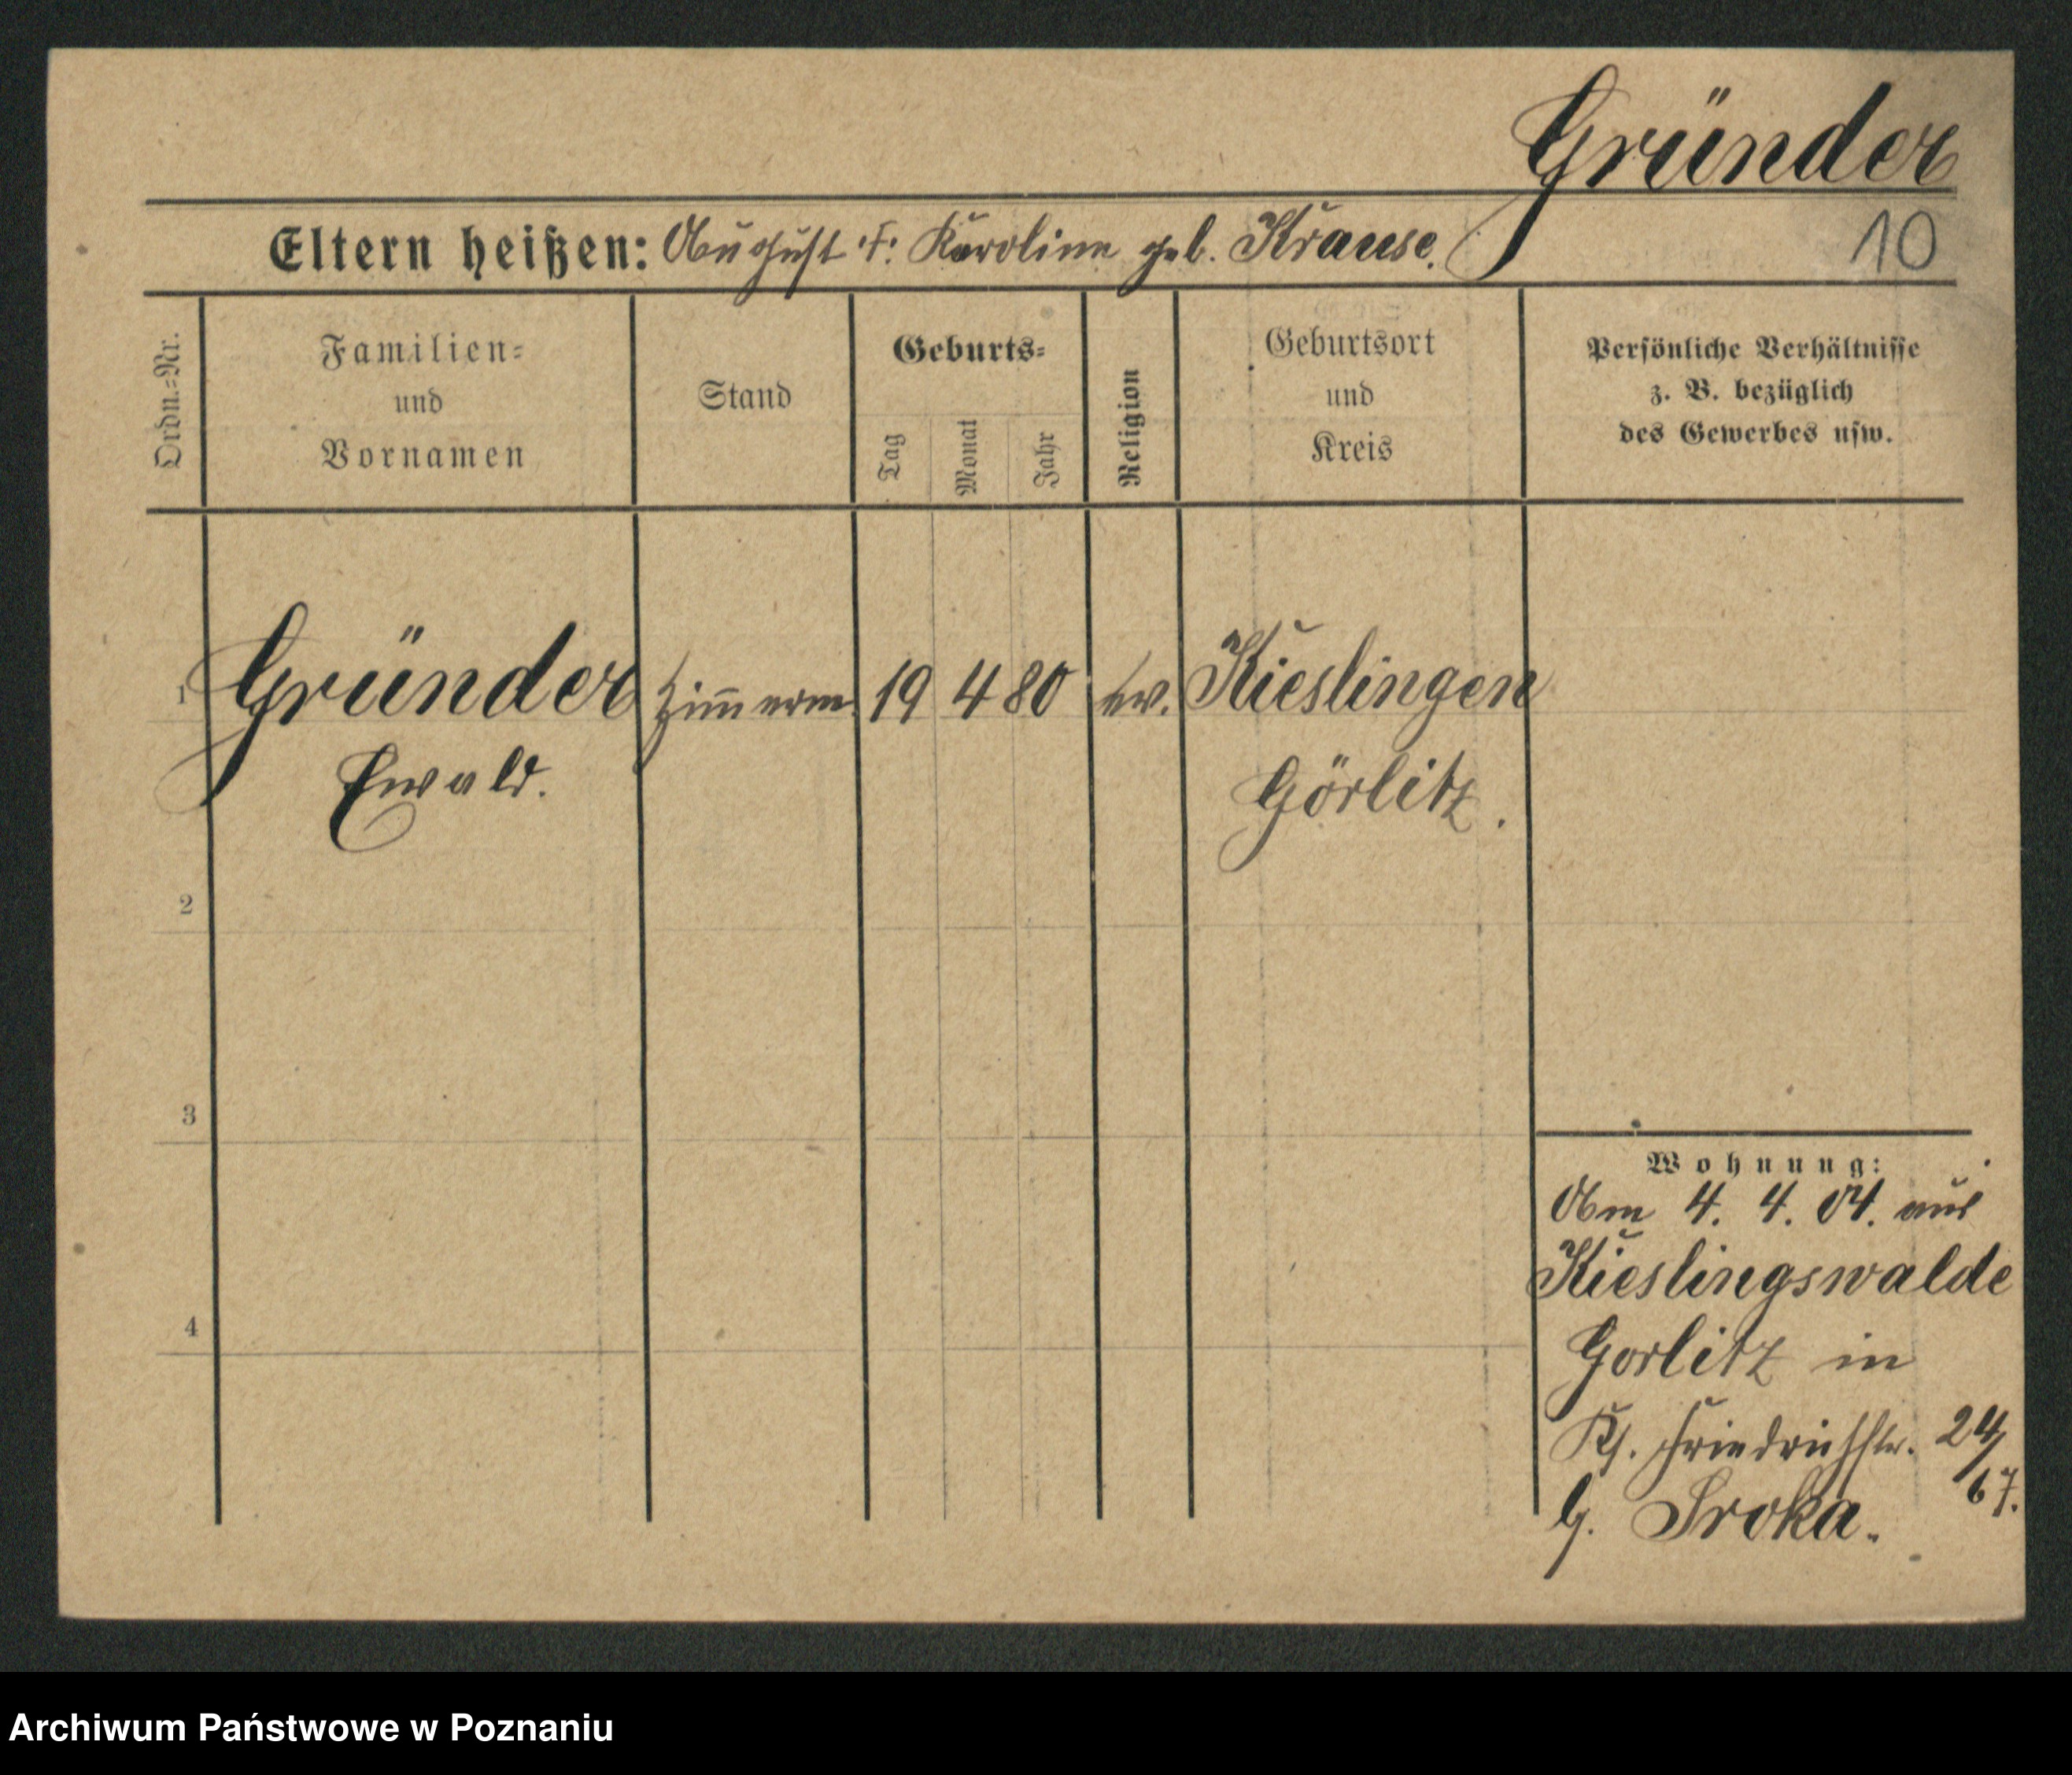 Gründer
Eltern heißen: August F: Karoline geb. Krause.
10
Ordn.=Nr.
Familien=
und
Vornamen
Stand
Geburts=
Tag
Monat
Jahr
Religion
Geburtsort
und
Kreis
Persönliche Verhältnisse
z. B. bezüglich
des Gewerbes usw.
1 Gründer Zimmerm. 19 4 80 ev. Kieslingen
Ewald. Görlitz.
2
3
4
Wohnung:
Am 4. 4. 04. aus
Kieslingswalde
Gorlitz in
Friedrichstr. 24/
67.
b. Sroka.
Archiwum Państwowe w Poznaniu